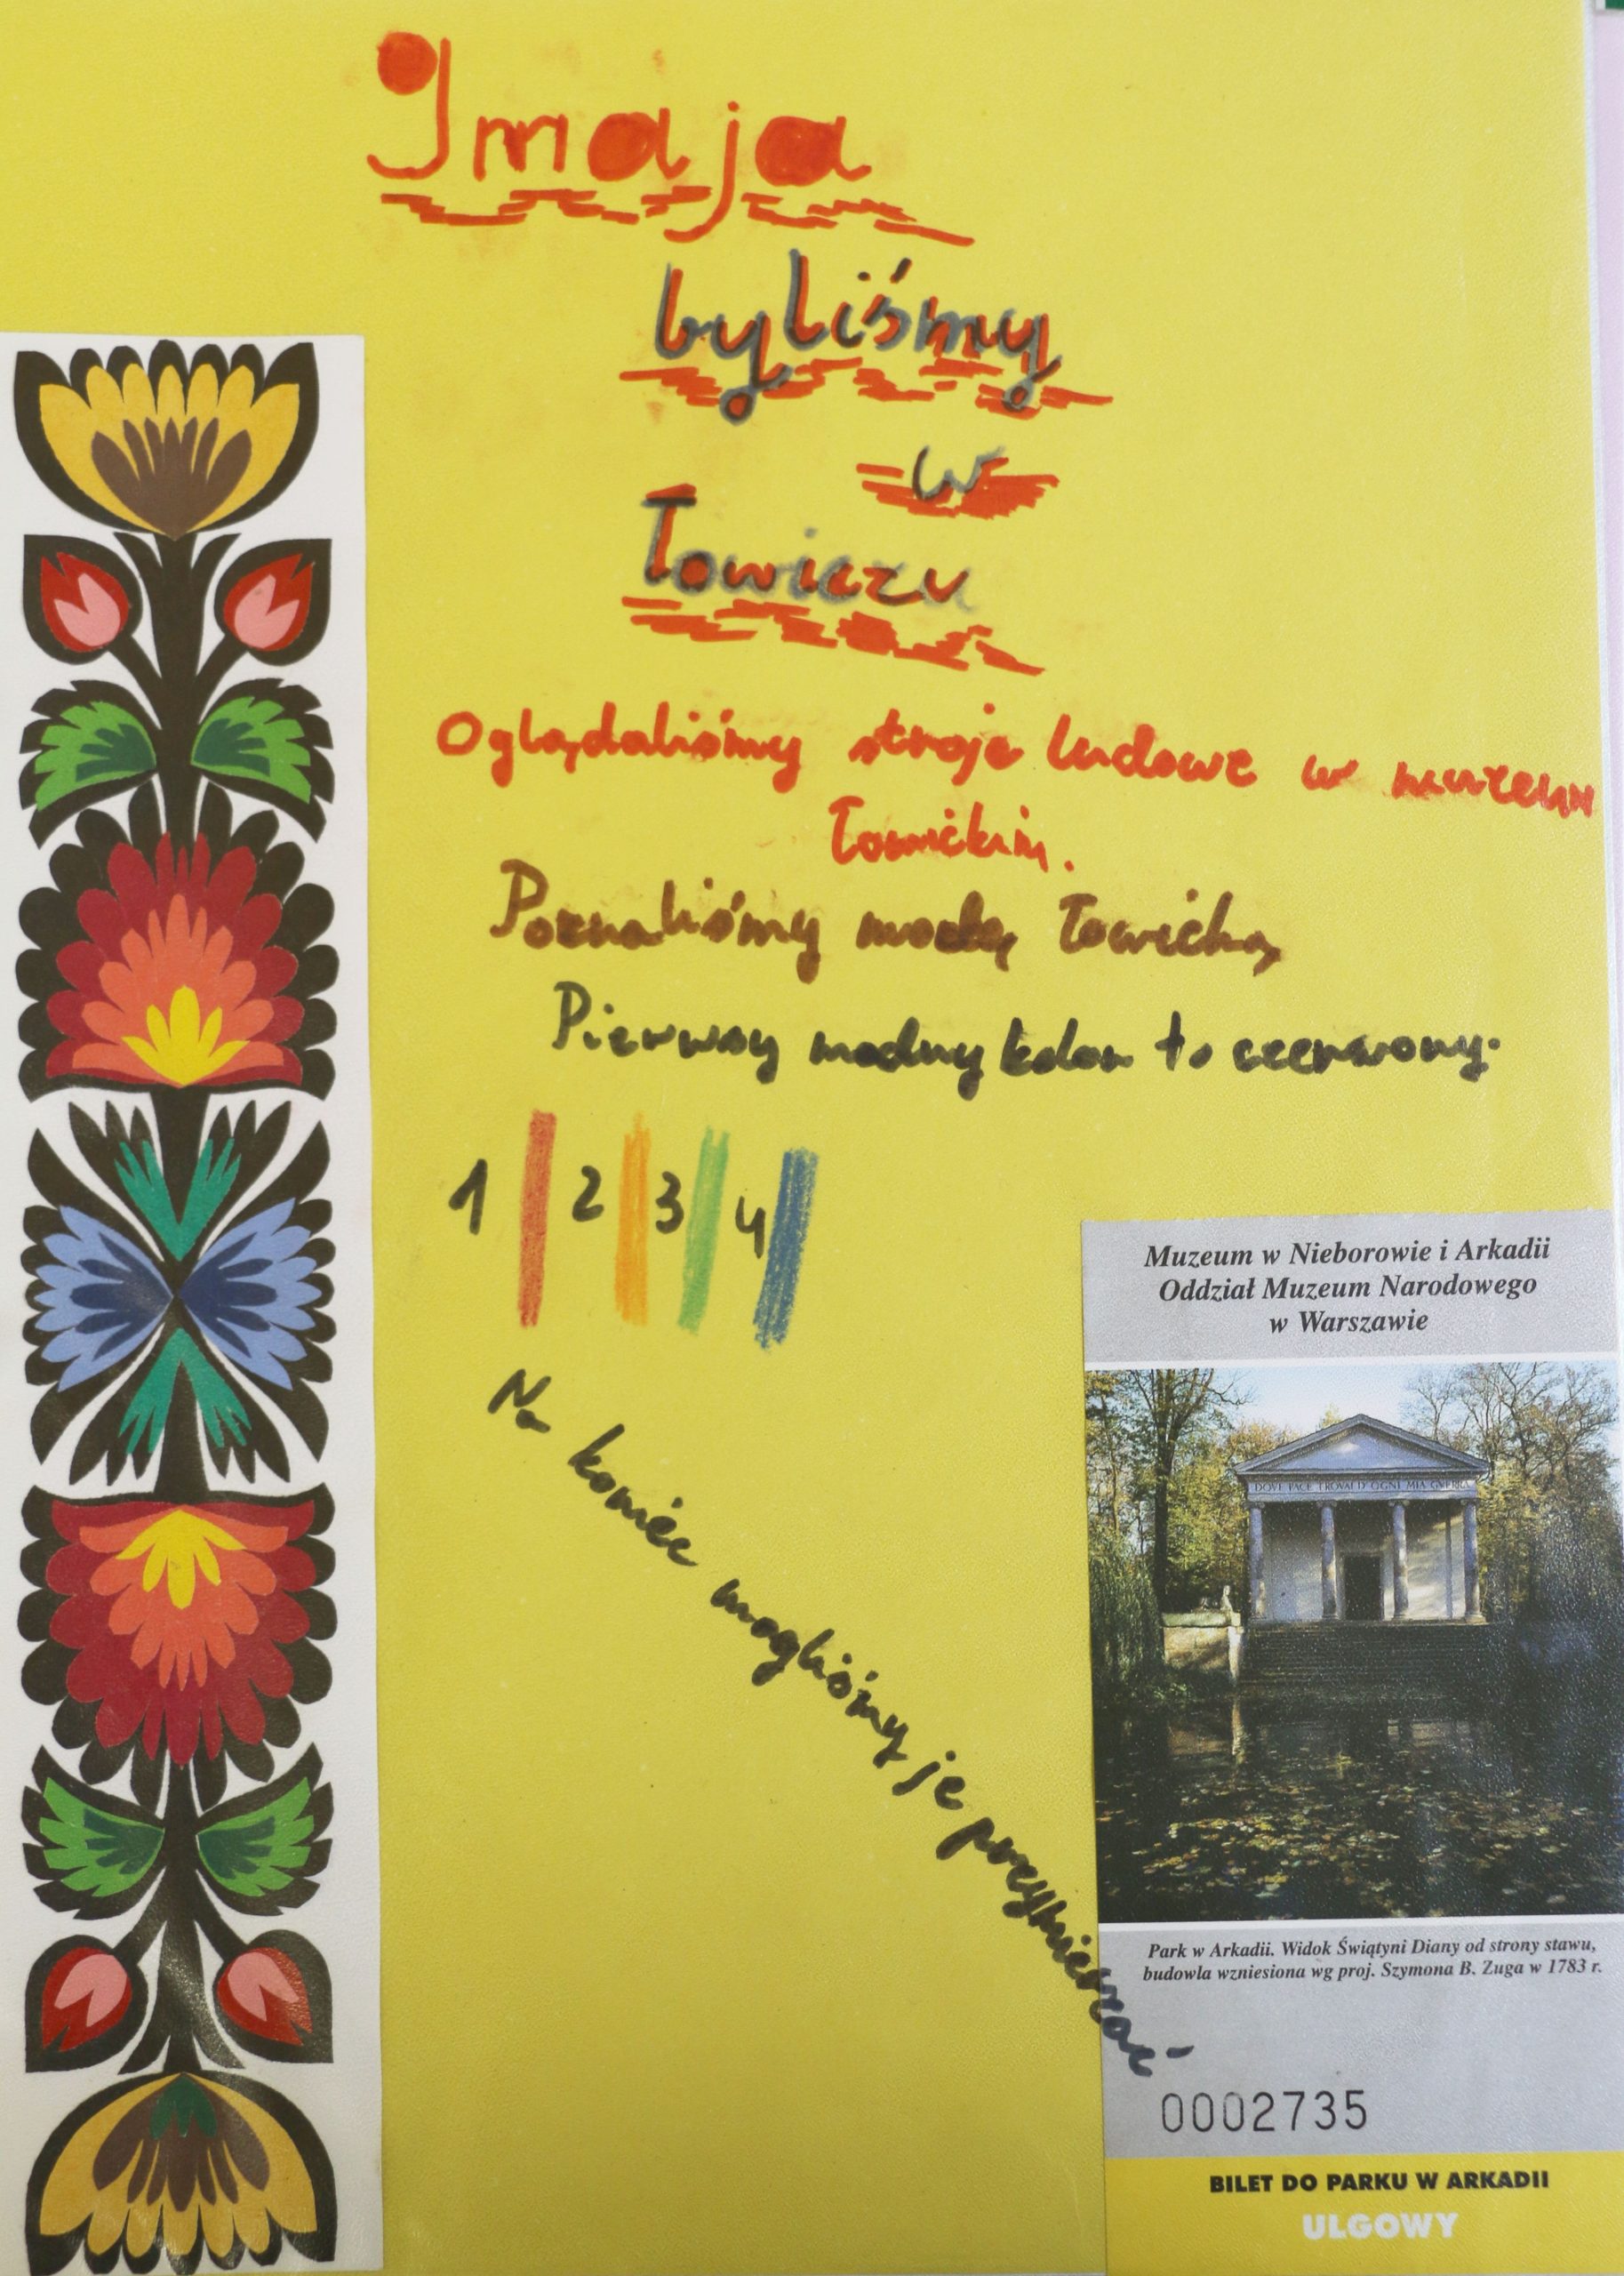 9 maja
byliśmy
w
Łowiczu
Oglądaliśmy stroje ludowe w muzeum
Łowickim.
Poznaliśmy modę Łowicką
Pierwszy modny kolor to czerwony.
1 2 3 4
Na koniec mogliśmy je przymierzać
Muzeum w Nieborowie i Arkadii
Oddział Muzeum Narodowego
w Warszawie
DOVE PACE TROVAI D'OGNI MIA GVERRA
Park w Arkadii. Widok Świątyni Diany od strony stawu,
budowla wzniesiona wg proj. Szymona B. Zuga w 1783 r.
0002735
BILET DO PARKU W ARKADII
ULGOWY